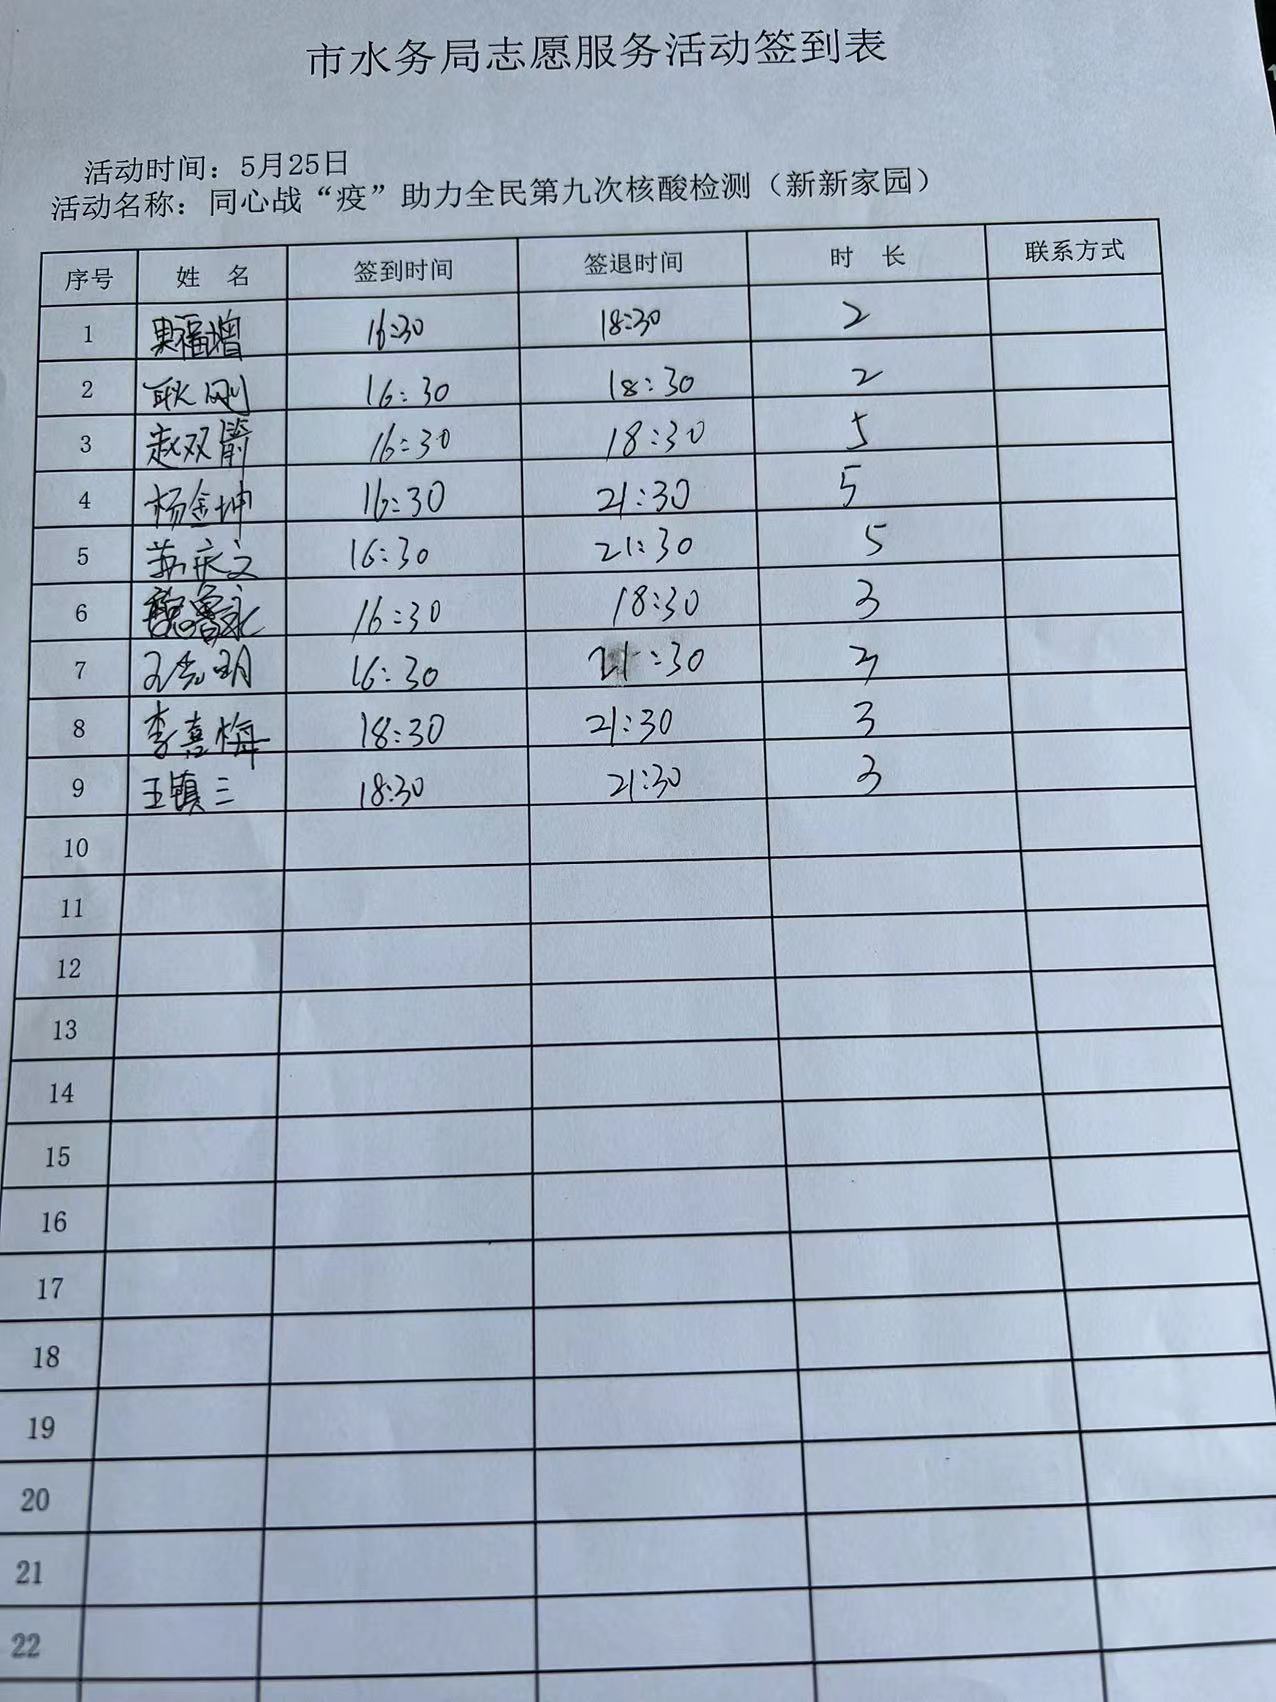 市水务局志愿服务活动签到表
活动时间：5月25日
活动名称：同心战“疫”助力全民第九次核酸检测（新新家园）
序号 姓 名 签到时间 签退时间 时 长 联系方式
1 福增 16:30 18:30 2
2 耿刚 16:30 18:30 2
3 赵双箭 16:30 18:30 5
4 杨金坤 16:30 21:30 5
5 苏庆文 16:30 21:30 5
6 16:30 18:30 3
7 16:30 21:30 3
8 李喜梅 18:30 21:30 3
9 王镇三 18:30 21:30 3
10
11
12
13
14
15
16
17
18
19
20
21
22